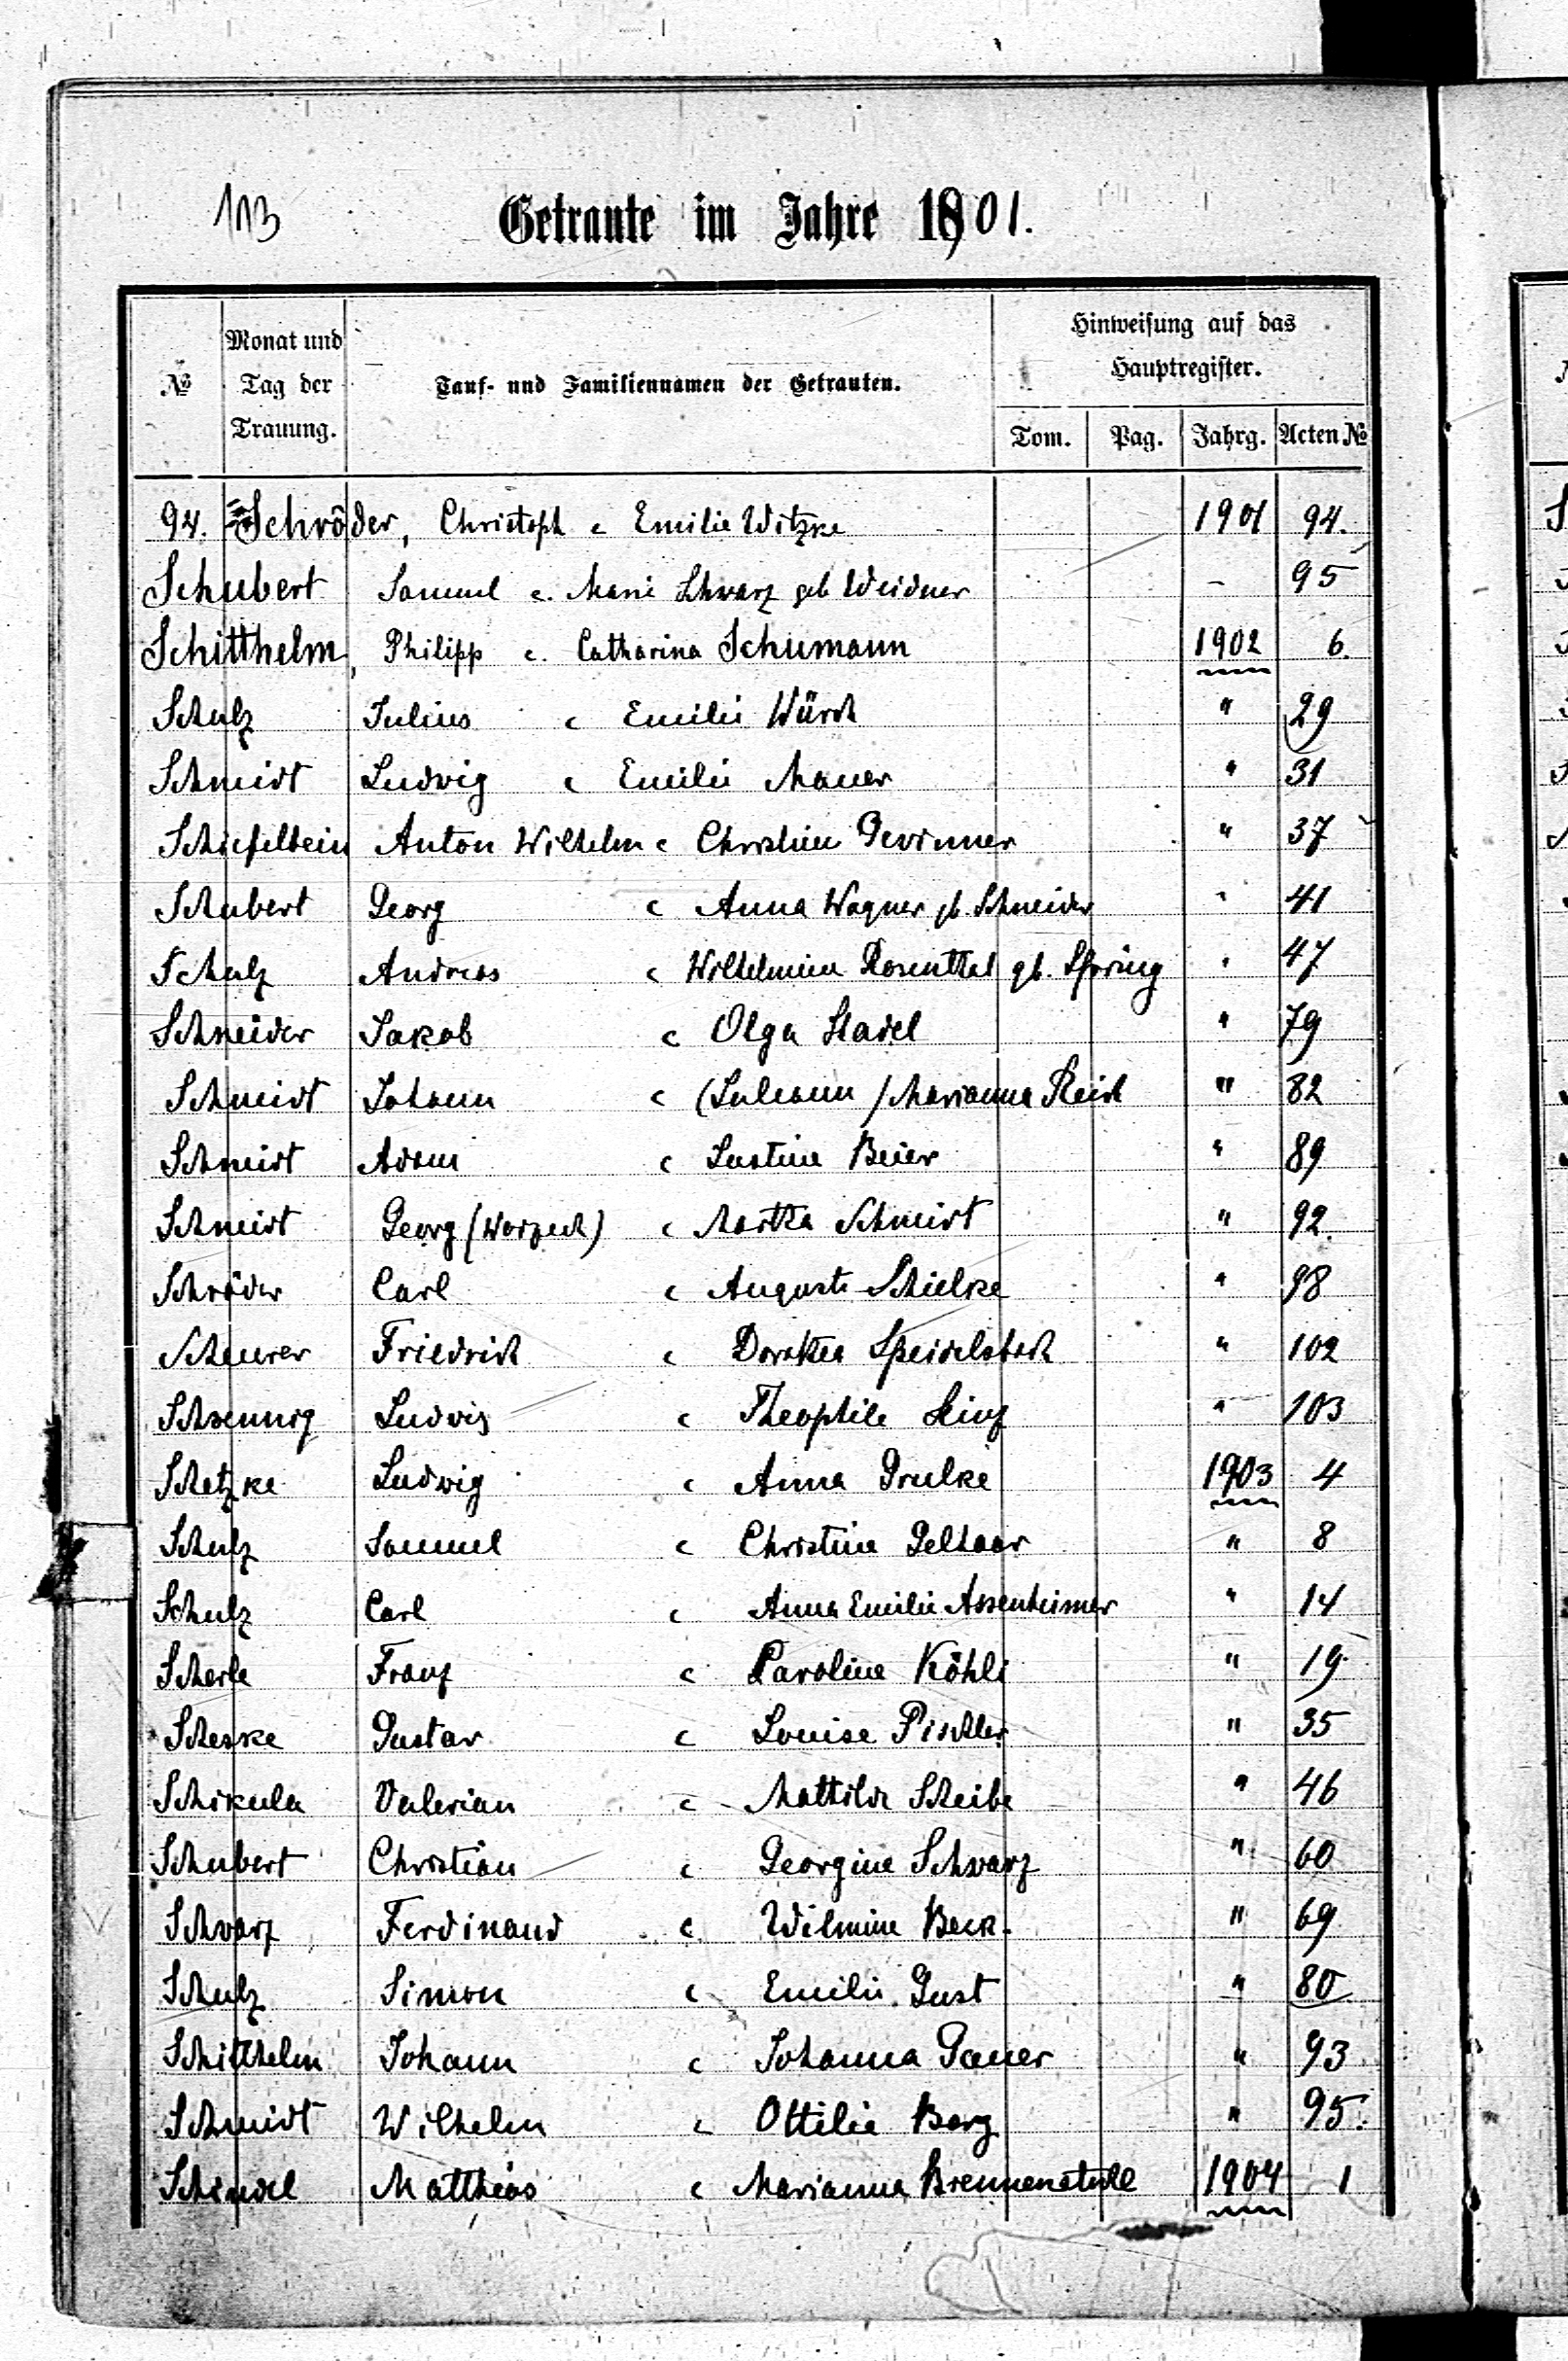 113
Getraute im Jahre 1901.
№ Monat und Tag der Trauung. Tauf- und Familiennamen der Getrauten. Hinweisung auf das Hauptregister.
Tom. Pag. Jahrg. Acten №
94. Schröder, Christoph c Emilie Witzke 1901 94.
Schubert Samuel c. Marie Schwarz geb Weidner - 95
Schitthelm, Philipp c. Catharina Schumann 1902 6.
Schulz Julius c Emilie Würch " 29
Schmidt Ludwig c Emilie Mauer " 31
Schiefelbein Anton Wilhelm c Christine Gewinner " 37
Schubert Georg c Anna Wagner gb. Schneider " 41
Schulz Andreas c Wilhelmine Rosenthal gb. Spring " 47
Schneider Jakob c Olga Stadel " 79
Schmidt Johann c (Juliana / Marianna Reich " 82
Schmidt Adam c Justine Beier " 89
Schmidt Georg (Worzech) c Martha Schmidt " 92.
Schröder Carl c Auguste Schielke " 98
Scheurer Friedrich c Dorothea Speidelsbach " 102
Ludwig c Theophile " 103
Schatzke Ludwig c Anna Prulke 1903 4
Schulz Samuel c Christine Gelhaar " 8
Schulz Carl c Anna Emilie Assenheimer " 14
Scherle Franz c Caroline Köhli " 19.
Scheske Gustav c Louise Pichler " 35
Schikula Valerian c Mathilde Scheibe " 46
Schubert Christian c Georgine Schwarz " 60
Schwarz Ferdinand c Wilmine Beck. " 69
Schulz Simon c Emilie Gust " 80
Schitthelm Johann c Johanna Bauer " 93
Schmidt Wilhelm c Ottilie Berg " 95.
Schindel Matthäos c Marianna Brennenstuhl 1904 1